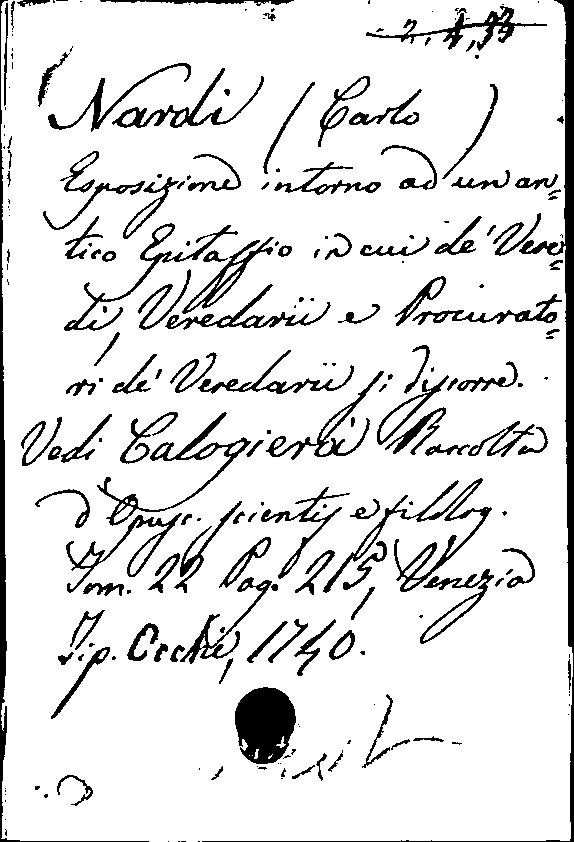 2, 4, 33
Nardi (Carlo)
Esposizione intorno ad un an=
tico Epitaffio in cui de' Vere=
di, Veredarii e Procurato=
ri de' Veredarii si discorre.
Vedi Calogierà Raccolta
d'Opusc. scientif e filolog.
Tom. 22 Pag. 215, Venezia
Tip. Occhi, 1740.